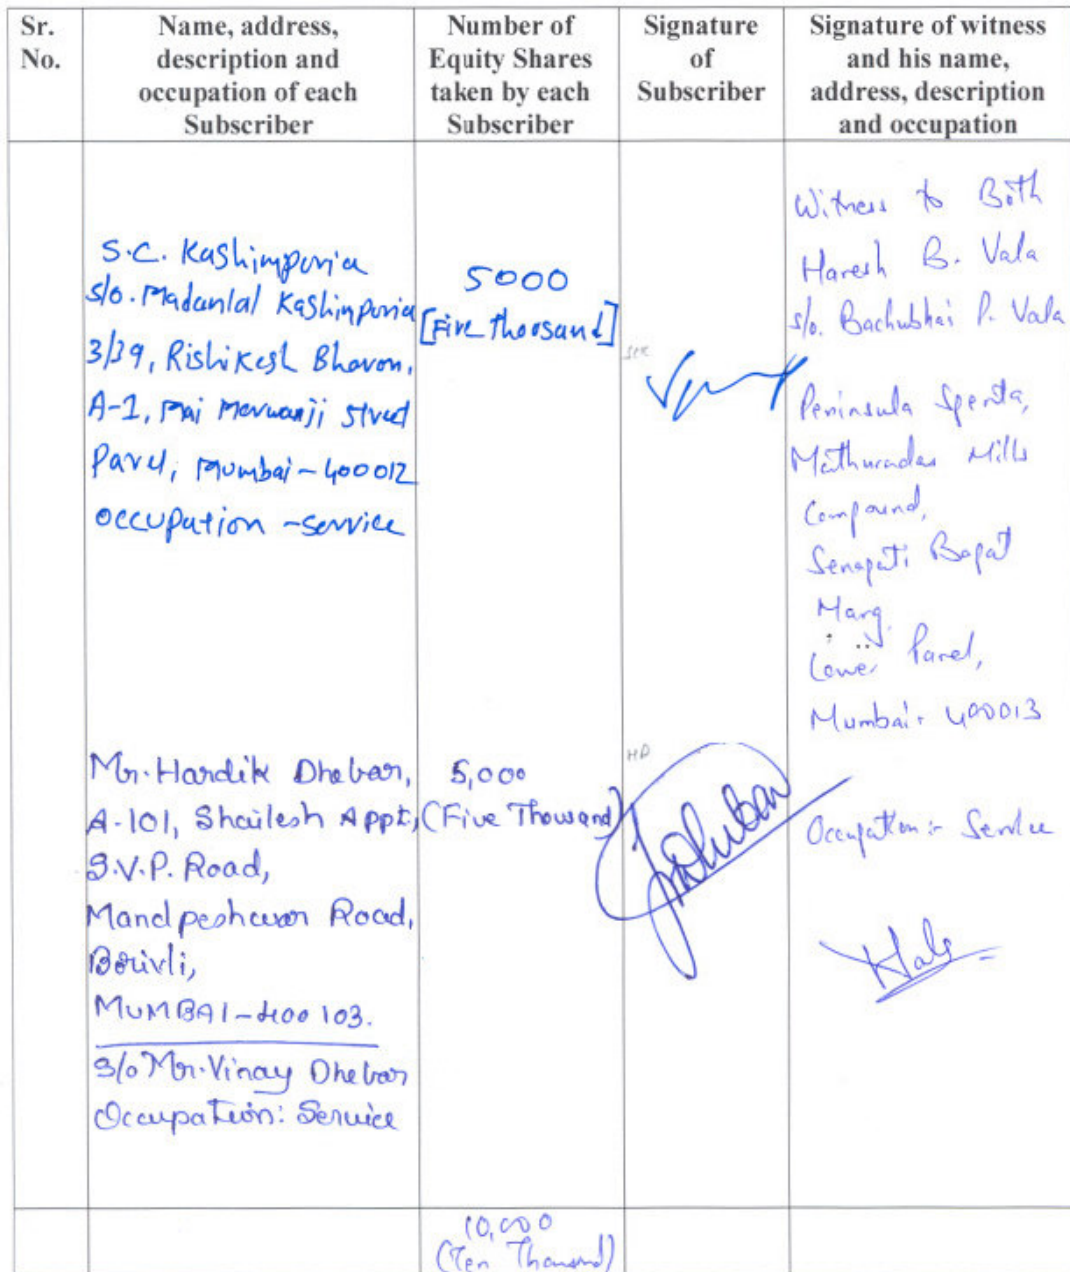 Sr. No.
Name, address, description and occupation of each Subscriber
Number of Equity Shares taken by each Subscriber
Signature of Subscriber
Signature of witness and his name, address, description and occupation
S.C. Kashimpuria
s/o. Madanlal Kashimpuria
3/39, Rishikesh Bhavan,
A-1, Mai Merwanji Street
Parel, Mumbai-400012
occupation -service
5000
[Five thousand]
Witness to Both
Haresh B. Vala
s/o. Bachubhai P. Vala
Peninsula Spenta,
Mathuradas Mills
Compound,
Senapati Bapat
Marg.
Lower Parel,
Mumbai- 400013
Occupation:- Service
Mr. Hardik Dhebar,
A-101, Shailesh Appt,
S.V.P. Road,
Mandpeshwar Road,
Borivli,
MUMBAI-400 103.
S/o Mr. Vinay Dhebar
Occupation: Service
5,000
(Five Thousand)
HD
10,000
(Ten Thousand)